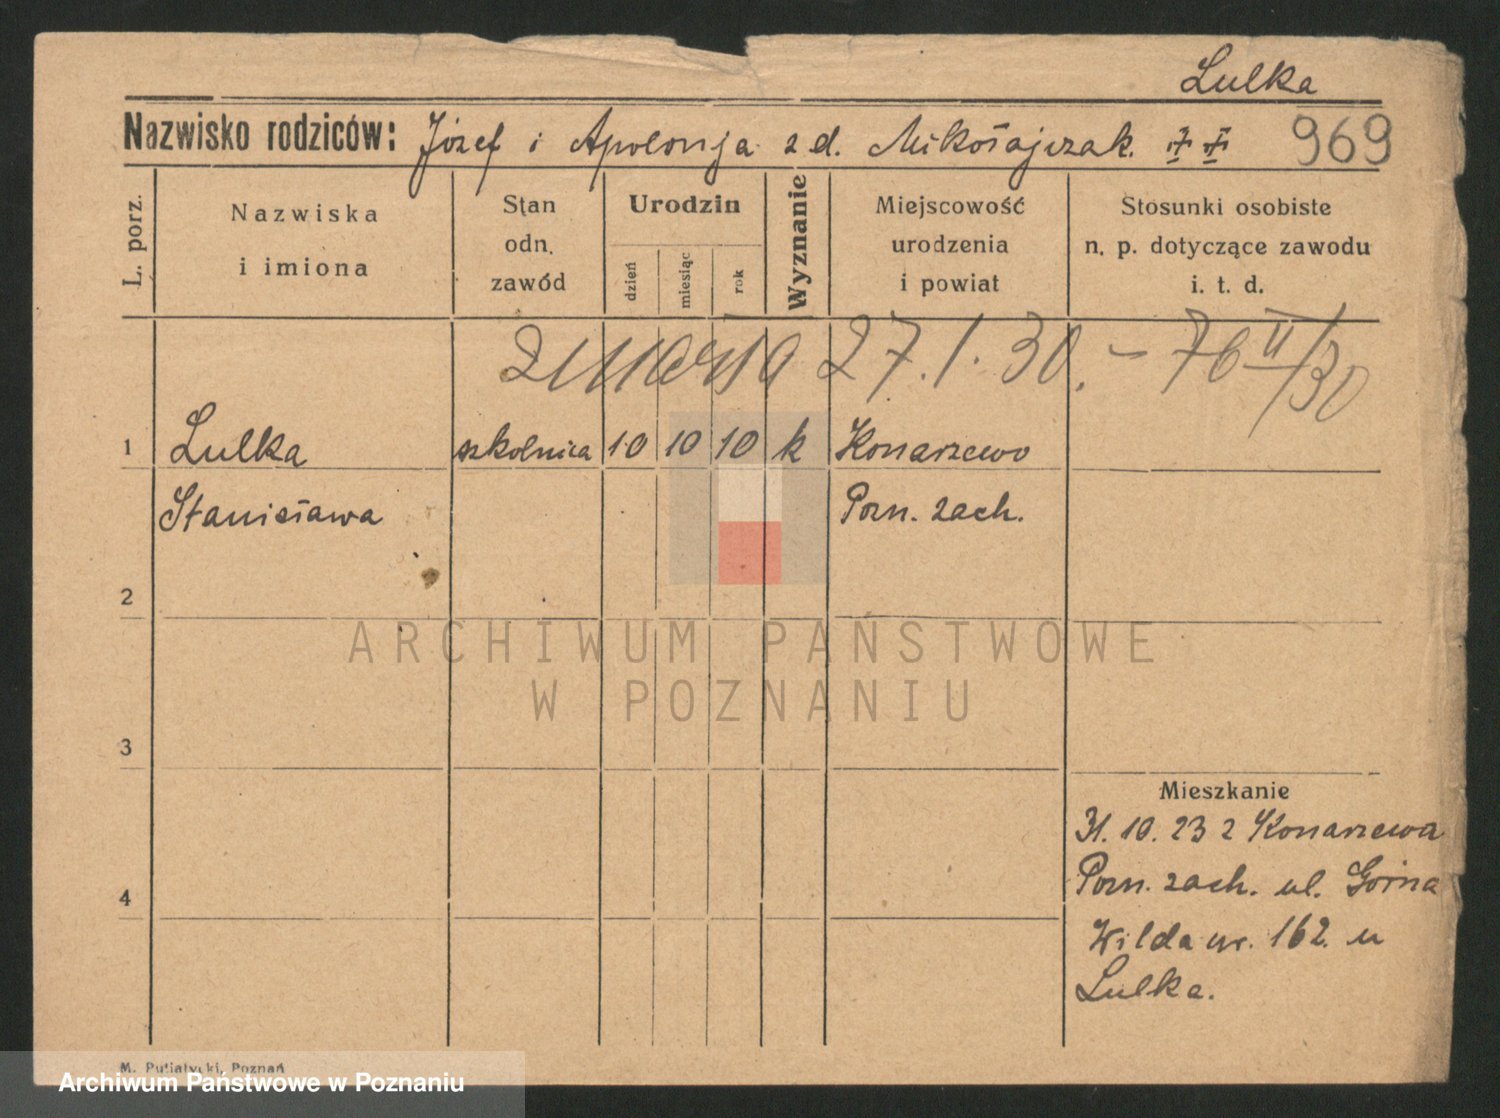 Lulka
Nazwisko rodziców: Józef i Apolonja z d. Mikołajczak.
969
L. porz.
Nazwiska
i imiona
Stan
odn.
zawód
Urodzin
dzień
miesiąc
rok
Wyznanie
Miejscowość
urodzenia
i powiat
Stosunki osobiste
n. p. dotyczące zawodu
i. t. d.
zmarła 27.1.30. – 76 II/30
1 Lulka szkolnica 10 10 10 k Konarzewo
Stanisława Pozn. zach.
2
ARCHIWUM PAŃSTWOWE
W POZNANIU
3
Mieszkanie
31. 10. 23 z Konarzewa
Pozn. zach. ul. Górna
4
Wilda nr. 162. u
Lulka.
M. Putiatycki, Poznań
Archiwum Państwowe w Poznaniu